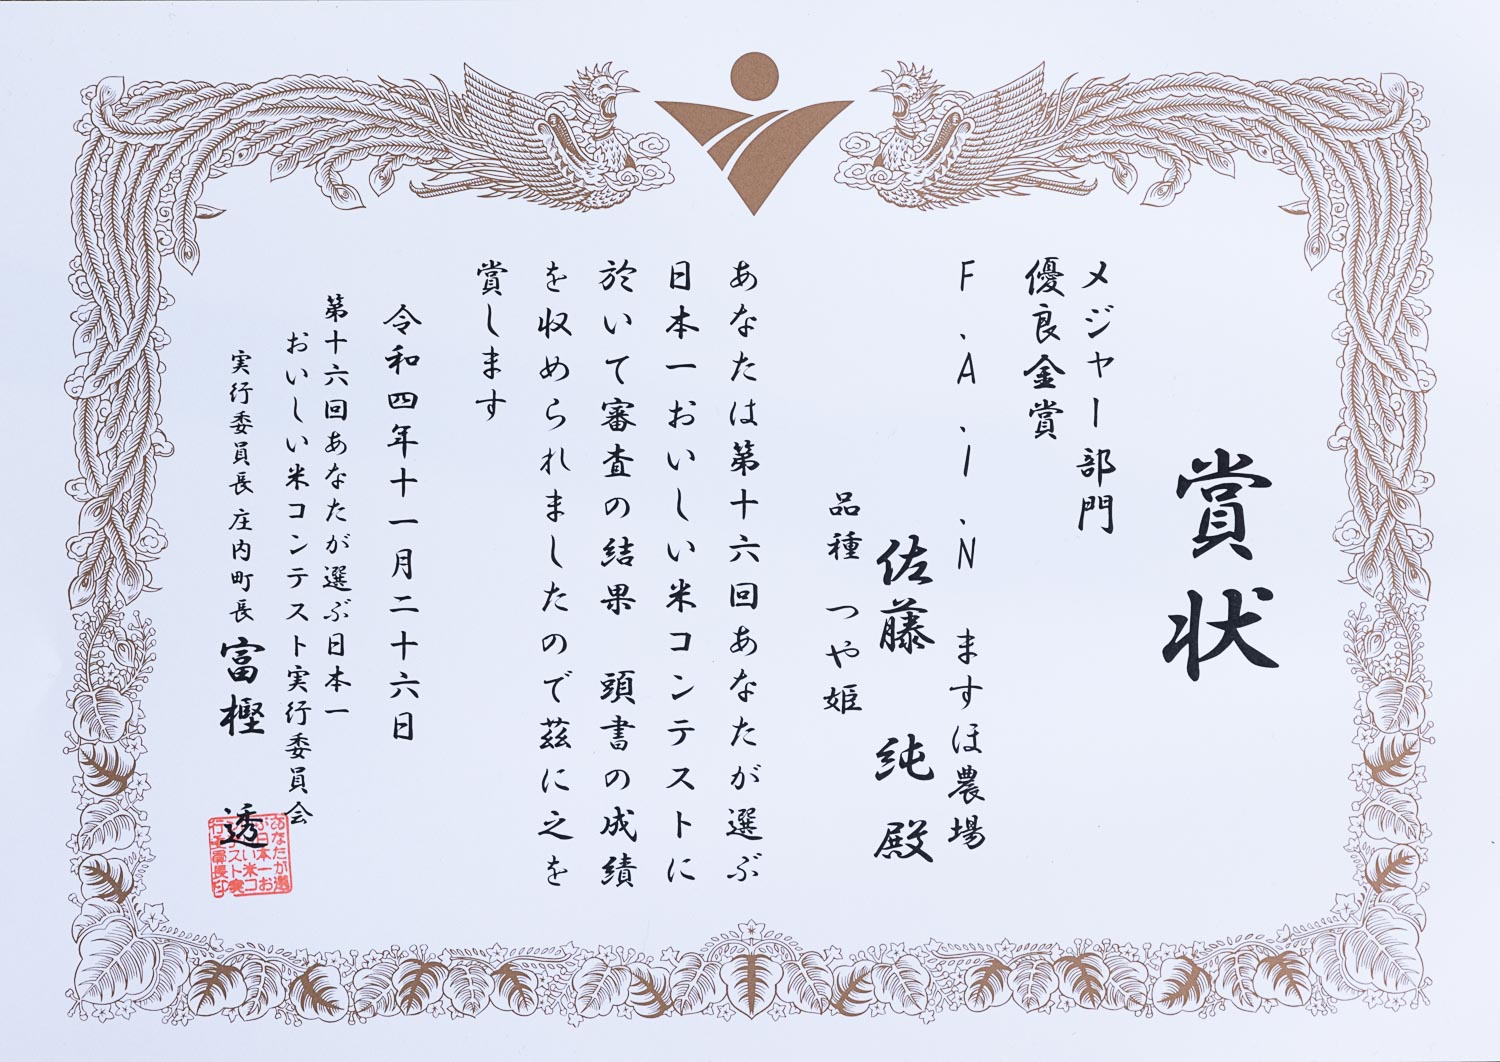 賞状
メジャー部門
優良金賞
F.A.I.N ますほ農場
佐藤 純 殿
品種 つや姫
あなたは第十六回あなたが選ぶ
日本一おいしい米コンテストに
於いて審査の結果 頭書の成績
を収められましたので茲に之を
賞します
令和四年十一月二十六日
第十六回あなたが選ぶ日本一
おいしい米コンテスト実行委員会
実行委員長 庄内町長 富樫 透